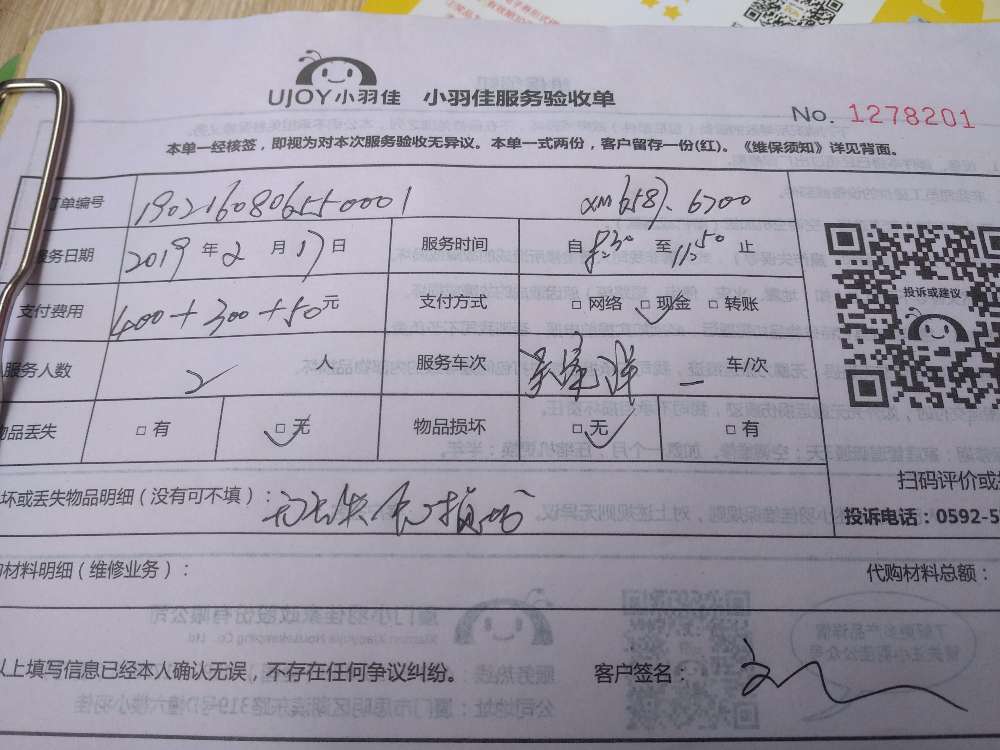 UJOY小羽佳 小羽佳服务验收单
No. 1278201
本单一经核签，即视为对本次服务验收无异议。本单一式两份，客户留存一份(红)。《维保须知》详见背面。
订单编号 1902160806550001
服务日期 2019 年 2 月 17 日 服务时间 自 8:30 至 11:50 止
支付费用 400+300+50 元 支付方式 □ 网络 □ 现金 □ 转账
服务人数 2 人 服务车次 一 车/次
物品丢失 □ 有 □ 无 物品损坏 □ 无 □ 有
投诉或建议
扫码评价或
坏或丢失物品明细（没有可不填）： 无丢失 无损坏
投诉电话：0592-5
材料明细（维修业务）： 代购材料总额：
以上填写信息已经本人确认无误，不存在任何争议纠纷。 客户签名：